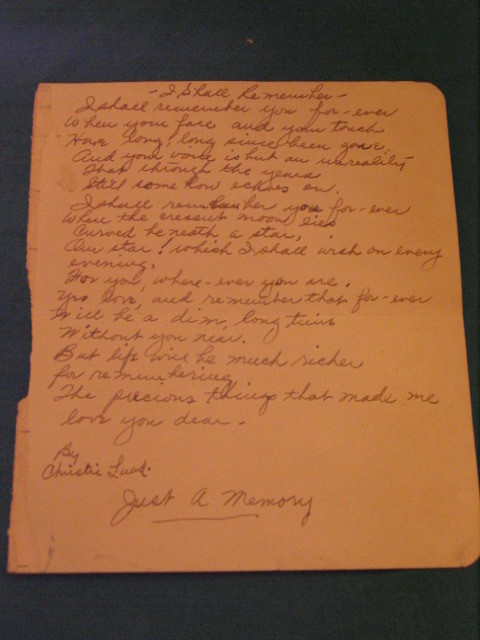 - I Shall Remember -
I shall remember you for-ever
When your face and your touch
Have long, long since been gone.
And your voice is but an unreality
That through the years
Still some how echoes on.
I shall remember you for-ever
When the cresent moon lies
Curved beneath a star,
Our star! which I shall wish on every
evening,
For you, where-ever you are.
Yes love, and remember that for-ever
Will be a dim, long time
Without you near.
But life will be much richer
for remembering
The precious things that made me
love you dear.
By
Christie
Just A Memory